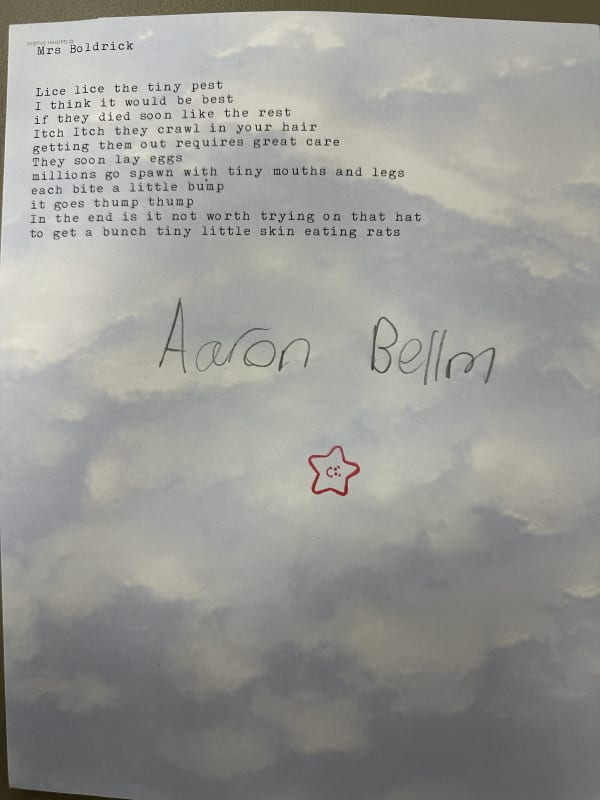 © Gartner Studios
Mrs Boldrick
Lice lice the tiny pest
I think it would be best
if they died soon like the rest
Itch Itch they crawl in your hair
getting them out requires great care
They soon lay eggs
millions go spawn with tiny mouths and legs
each bite a little bump
it goes thump thump
In the end is it not worth trying on that hat
to get a bunch tiny little skin eating rats
Aaron Bellm